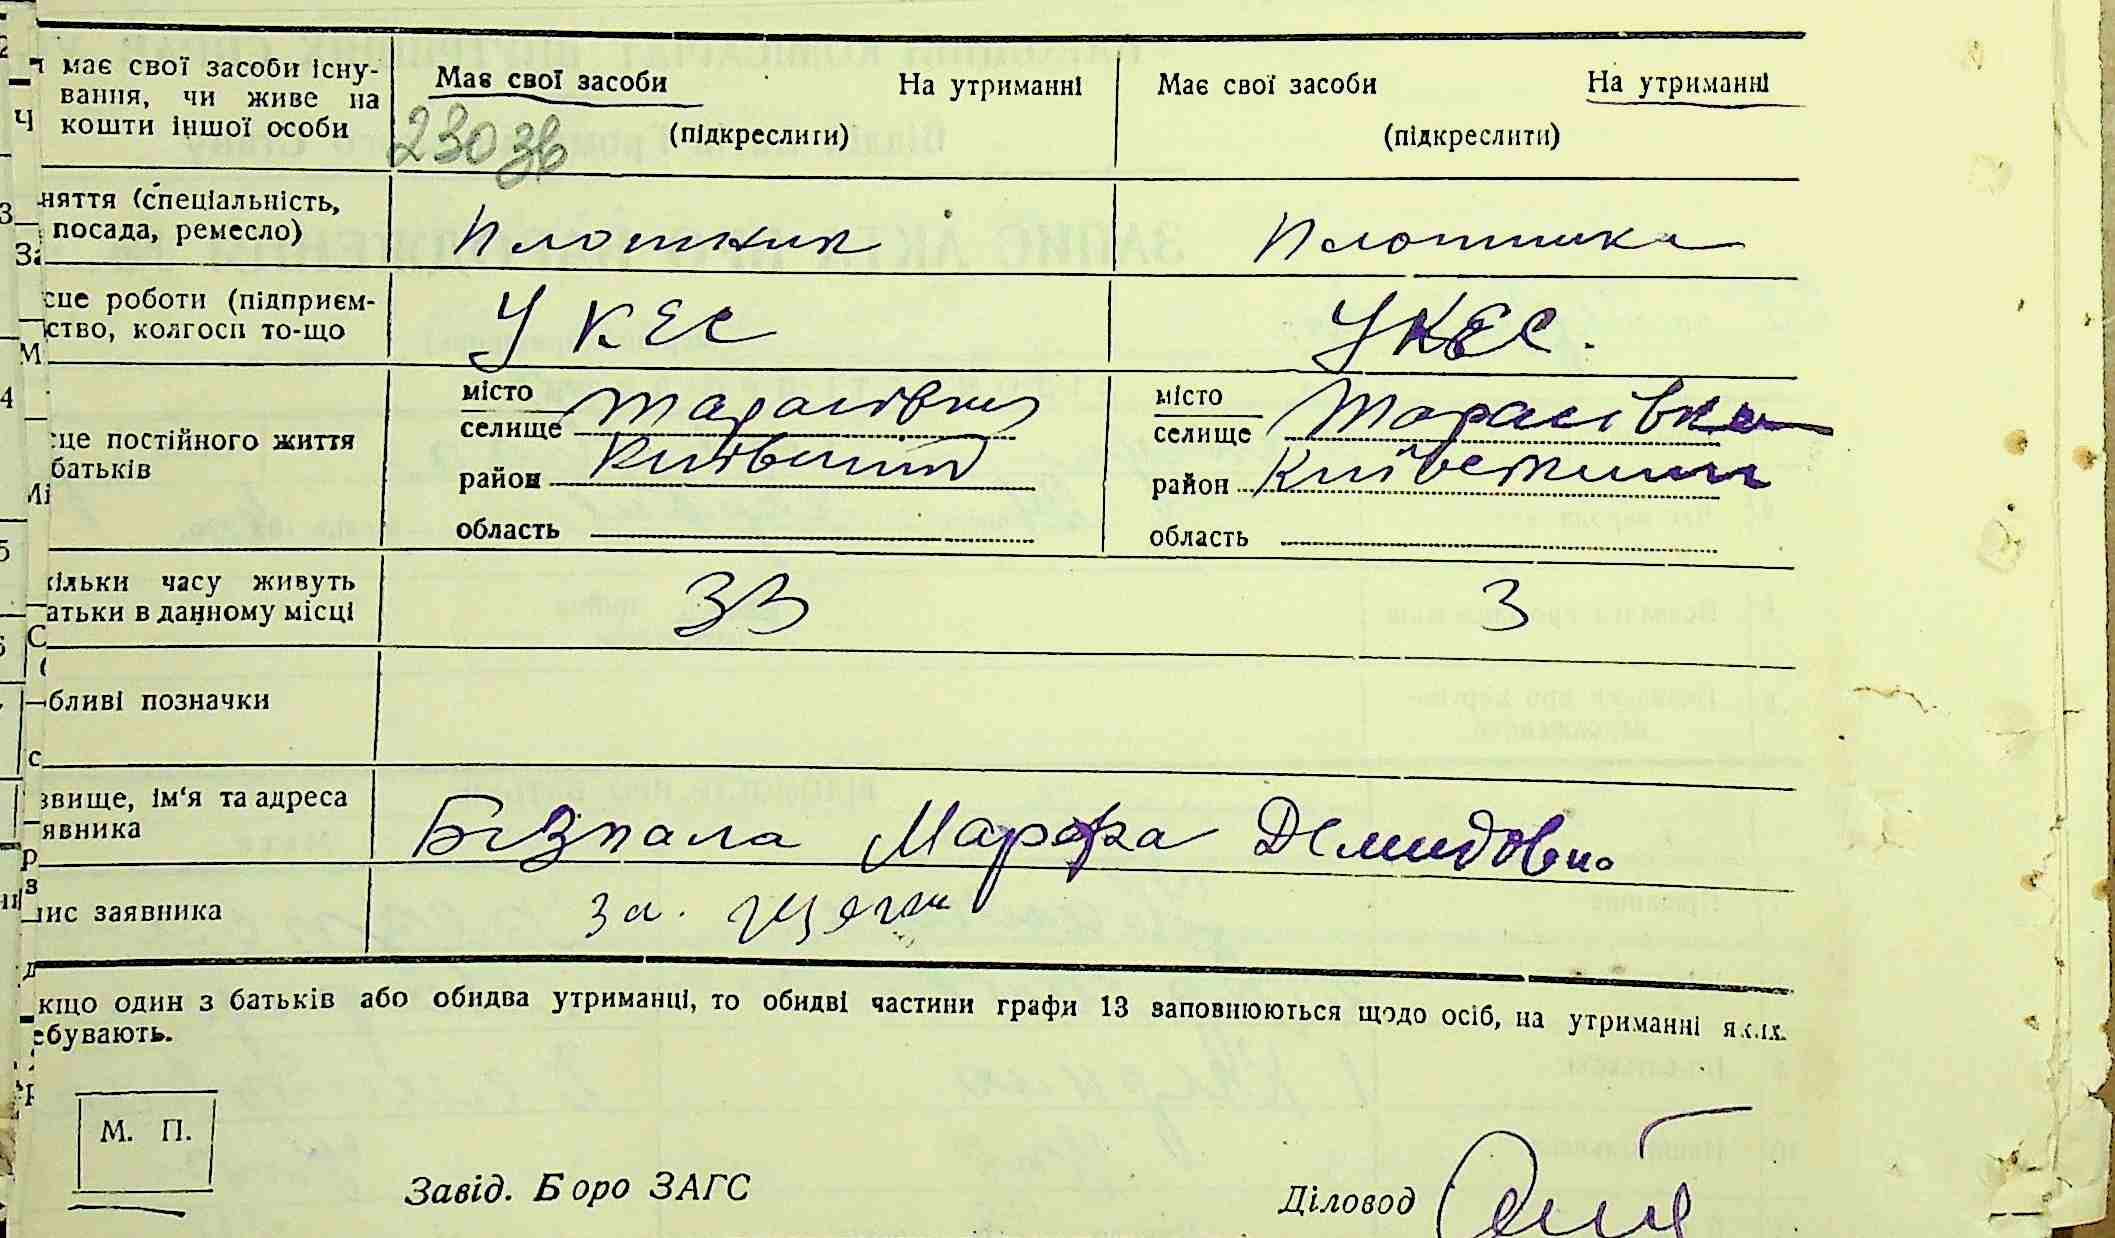 має свої засоби існу-
вання, чи живе на
кошти іншої особи
Має свої засоби На утриманні
(підкреслити)
Має свої засоби На утриманні
(підкреслити)
230 зв
няття (спеціальність,
посада, ремесло)
Плотник Плотника
сце роботи (підприєм-
ство, колгосп то-що
УКЕС УКЕС.
сце постійного життя
батьків
місто
селище Тарасівка
район Київський
область
місто
селище Тарасівка
район Київський
область
кільки часу живуть
атьки в данному місці
33 3
бливі позначки
звище, ім'я та адреса
явника
Безпала Марфа Демидовна
пис заявника
за
кщо один з батьків або обидва утриманці, то обидві частини графи 13 заповнюються щодо осіб, на утриманні яких
ебувають.
М. П.
Завід. Бюро ЗАГС
Діловод